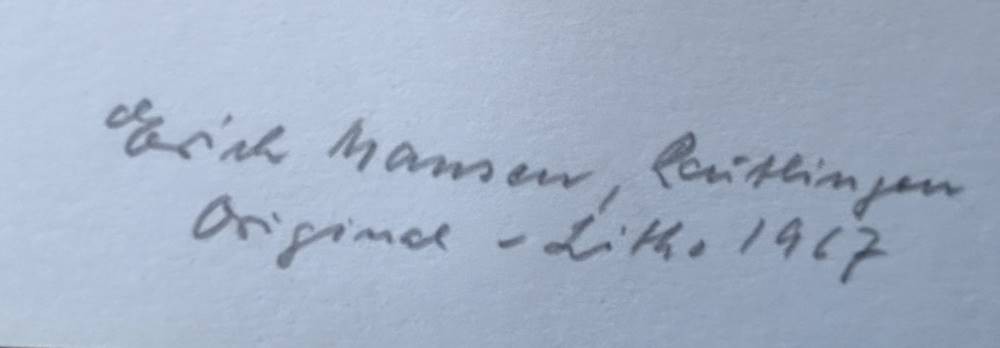 Erich Mansen, Reutlingen
Original - Litho 1967